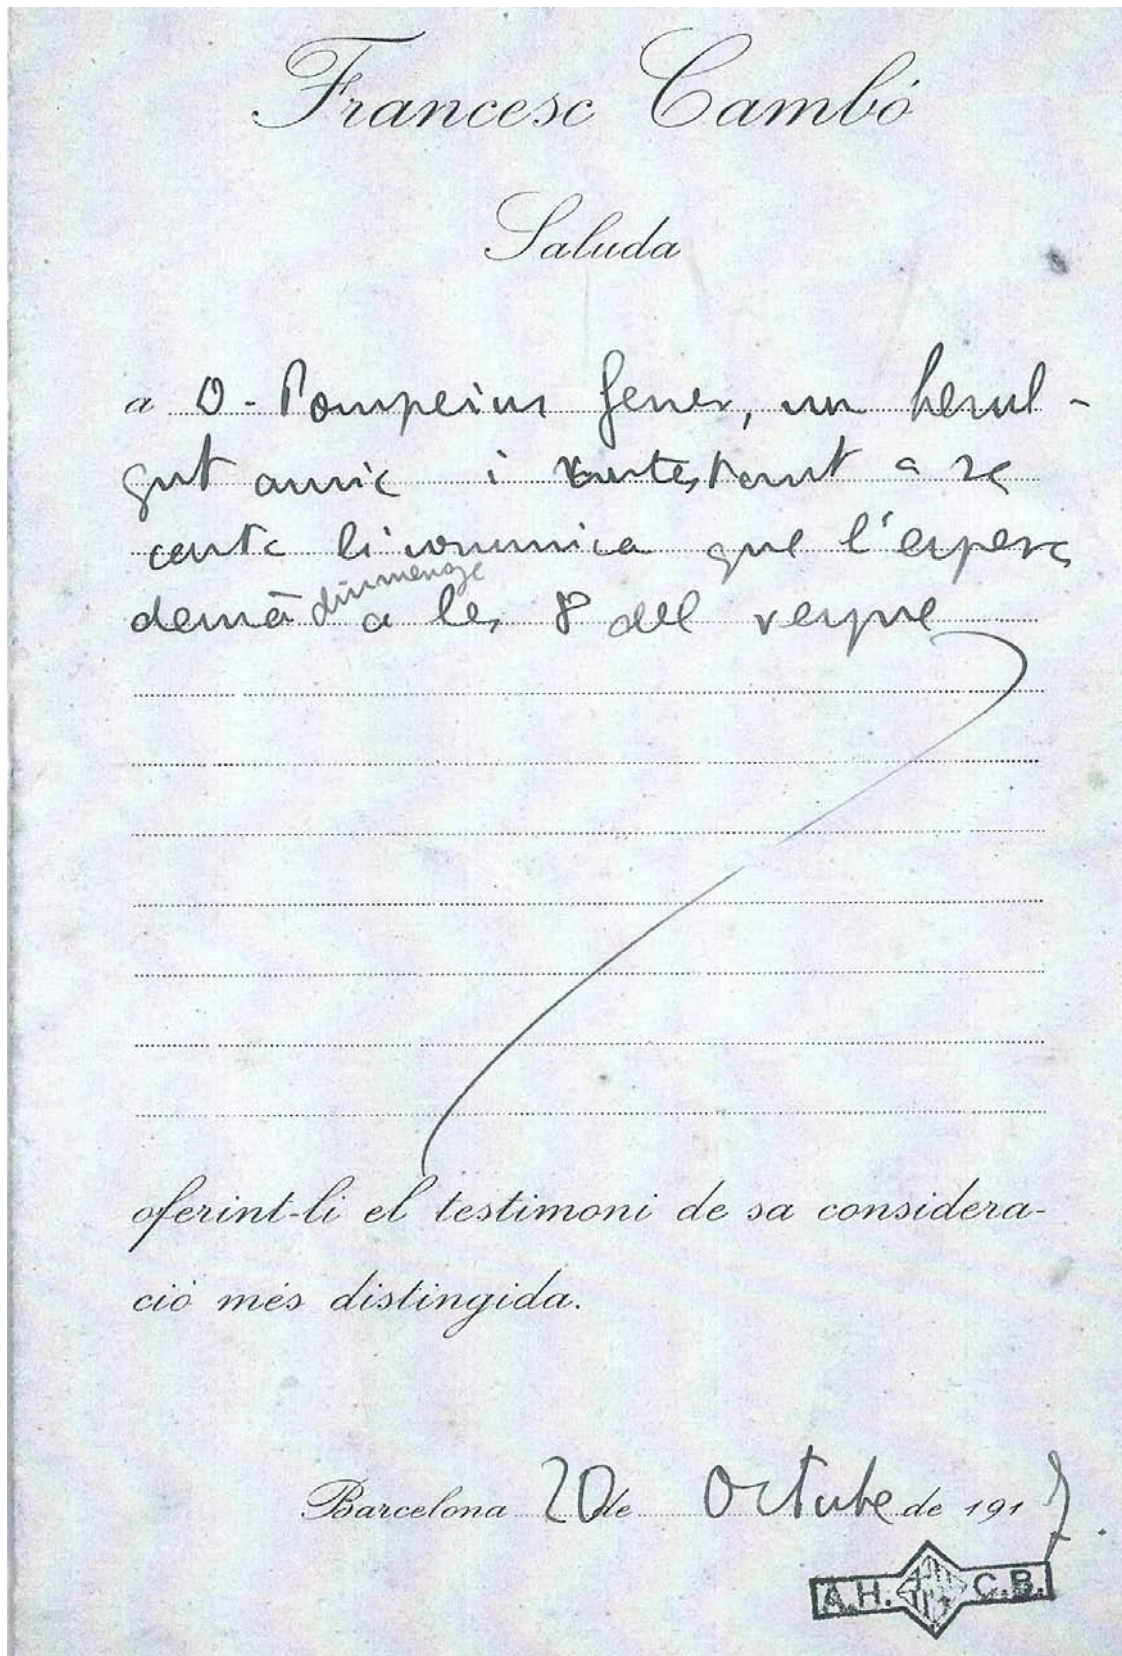 Francesc Cambó
Saluda
a D. Pompeius Gener, un benvol-
gut amic i contestant a sa
carta li comunica que l'espera
demà diumenge a les 8 del vespre
oferint-li el testimoni de sa considera-
ció més distingida.
Barcelona 20 de Octubre de 1917.
A.H. C.B.